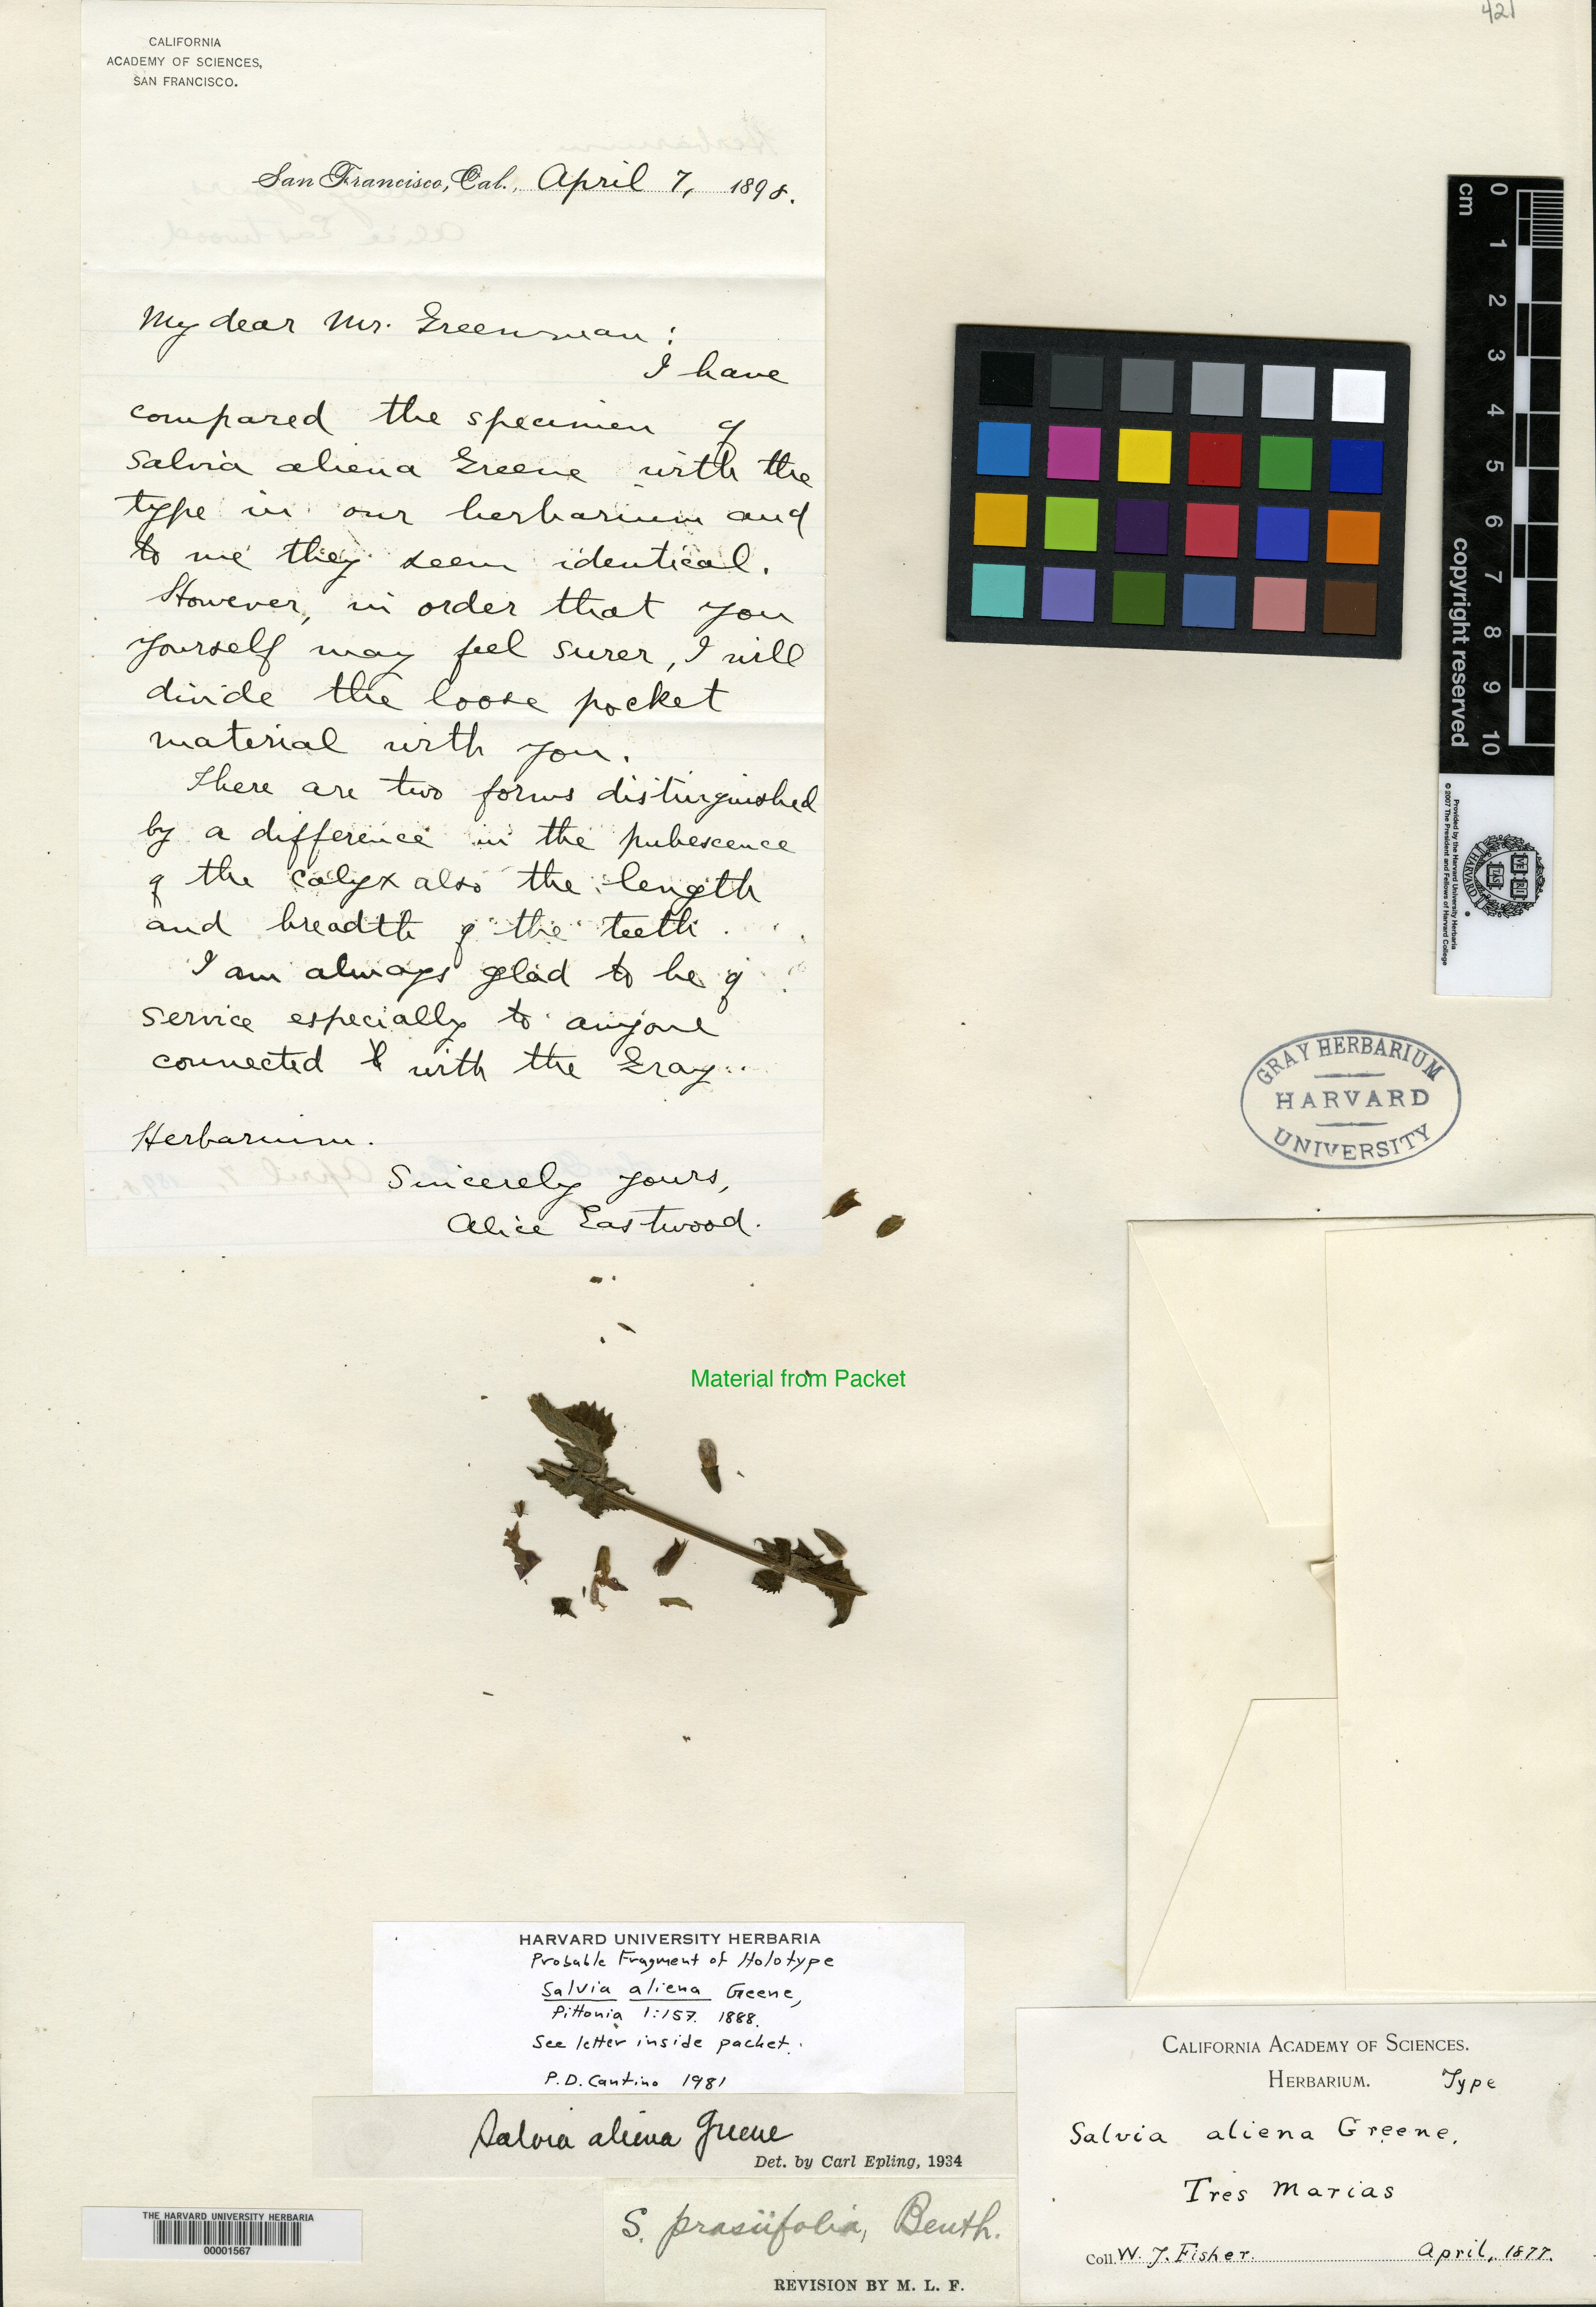 421
CALIFORNIA
ACADEMY OF SCIENCES,
SAN FRANCISCO.
San Francisco, Cal., April 7, 1898.
My dear Mr. Greenman:
I have
compared the specimen of
Salvia aliena Greene with the
type in our herbarium and
to me they seem identical.
However, in order that you
yourself may feel surer, I will
divide the loose pocket
material with you.
There are two forms distinguished
by a difference in the pubescence
of the calyx also the length
and breadth of the teeth.
I am always glad to be of
service especially to anyone
connected with the Gray
Herbarium.
Sincerely yours,
Alice Eastwood.
cm
0
1
2
3
4
5
6
7
8
9
10
copyright reserved
Provided by the Harvard University Herbaria
© 2007 The President and Fellows of Harvard College
HARVARD
VE RI TAS
GRAY HERBARIUM
HARVARD
UNIVERSITY
Material from Packet
HARVARD UNIVERSITY HERBARIA
Probable Fragment of Holotype
Salvia aliena Greene,
Pittonia 1:157. 1888.
See letter inside packet.
P.D. Cantino 1981
Salvia aliena Greene
Det. by Carl Epling, 1934
S. prasiifolia, Benth.
REVISION BY M. L. F.
THE HARVARD UNIVERSITY HERBARIA
00001567
CALIFORNIA ACADEMY OF SCIENCES.
HERBARIUM. Type
Salvia aliena Greene.
Tres Marias
Coll. W. J. Fisher. April, 1877.